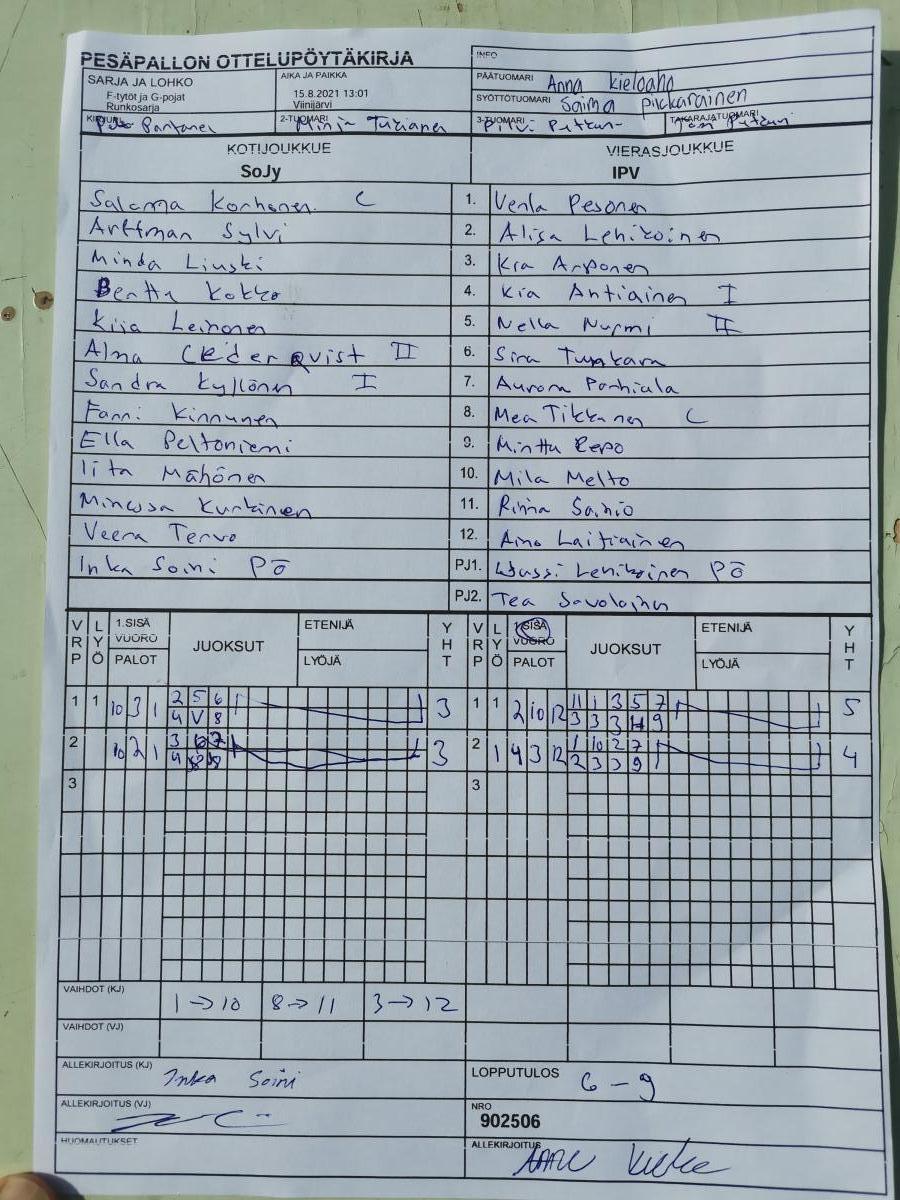 PESÄPALLON OTTELUPÖYTÄKIRJA
INFO
SARJA JA LOHKO
F-tytöt ja G-pojat
Runkosarja
AIKA JA PAIKKA
15.8.2021 13:01
Viinijärvi
PÄÄTUOMARI Anna
SYÖTTÖTUOMARI Saima Pikkarainen
KIRJURI
2-TUOMARI
3-TUOMARI
TAKARAJATUOMARI
KOTIJOUKKUE
SoJy
VIERASJOUKKUE
IPV
Salama Korhonen C 1. Venla Pesonen
Arffman Sylvi 2. Alisa Lehikoinen
Minda Liuski 3. Kia Arponen
Bertta Kokko 4. Kia Antiainen I
Kiia Leinonen 5. Nella Nurmi II
Alma Cederqvist II 6.
Sandra Kyllönen I 7. Aurora Parhiala
Fanni Kinnunen 8. Mea Tikkanen C
Ella Peltoniemi 9. Minttu Repo
Iita Mähönen 10. Mila Melto
Minessa Kurkinen 11. Riina Sainio
Veera Tervo 12. Aino Laitiainen
Inka Soini PÖ PJ1. Jussi Lehikoinen PÖ
PJ2. Tea Savolainen
VRP LYÖ 1.SISÄ VUORO PALOT JUOKSUT ETENIJÄ LYÖJÄ YHT VRP LYÖ 1.SISÄ VUORO PALOT JUOKSUT ETENIJÄ LYÖJÄ YHT
1 1 10 3 1 2 5 6 3 1 1 2 10 12 11 1 3 5 7 5
4 V 8 3 3 3 4 9
2 10 2 1 3 6 7 3 2 1 4 3 12 1 10 2 7 4
4 8 8 2 3 3 9
3 3
VAIHDOT (KJ) 1 → 10 8 → 11 3 → 12
VAIHDOT (VJ)
ALLEKIRJOITUS (KJ) Inka Soini
LOPPUTULOS 6 - 9
ALLEKIRJOITUS (VJ)
NRO
902506
HUOMAUTUKSET
ALLEKIRJOITUS